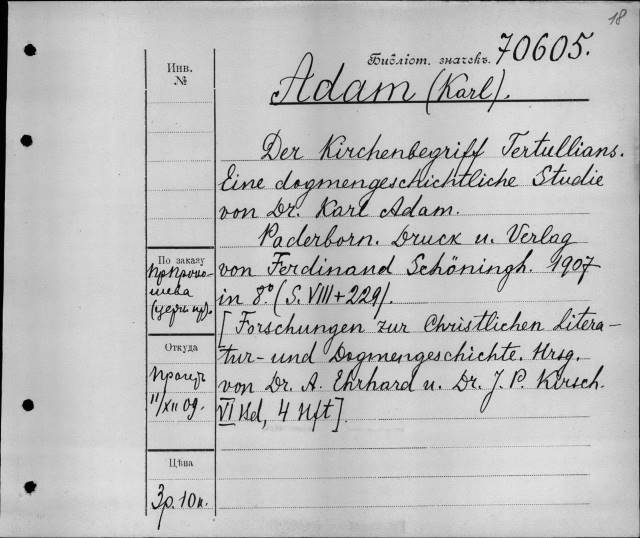 18
Библіот. значекъ. 70605.
Инв.
№
Adam (Karl).
Der Kirchenbegriff Tertullians.
Eine dogmengeschichtliche Studie
von Dr. Karl Adam.
Paderborn. Druck u. Verlag
von Ferdinand Schöningh. 1907
in 8º. (S. VIII + 229).
[Forschungen zur Christlichen Litera-
tur- und Dogmengeschichte. Hrsg.
von Dr. A. Ehrhard u. Dr. J. P. Kirsch.
VI Bd, 4 Hft].
По заказу
Откуда
11/XII 09.
Цѣна
3р. 10к.